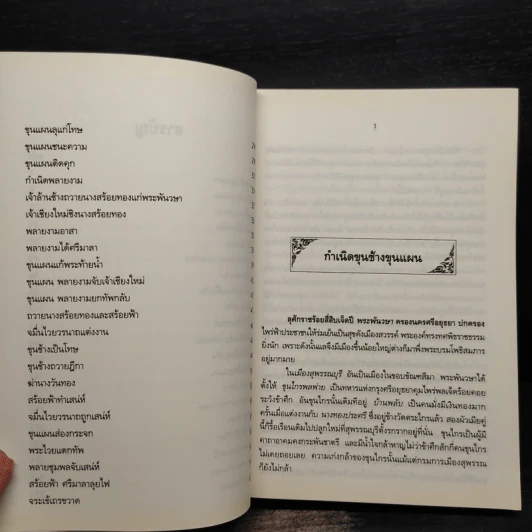 ขุนแผนลุแก่โทษ
ขุนแผนชนะความ
ขุนแผนติดคุก
กำเนิดพลายงาม
เจ้าล้านช้างถวายนางสร้อยทองแก่พระพันวษา
เจ้าเชียงใหม่ชิงนางสร้อยทอง
พลายงามอาสา
พลายงามได้ศรีมาลา
ขุนแผนแก้พระท้ายน้ำ
ขุนแผน พลายงามจับเจ้าเชียงใหม่
ขุนแผน พลายงามยกทัพกลับ
ถวายนางสร้อยทองและสร้อยฟ้า
จมื่นไวยวรนาถแต่งงาน
ขุนช้างเป็นโทษ
ขุนช้างถวายฎีกา
ฆ่านางวันทอง
สร้อยฟ้าทำเสน่ห์
จมื่นไวยวรนาถถูกเสน่ห์
ขุนแผนส่องกระจก
พระไวยแตกทัพ
พลายชุมพลจับเสน่ห์
สร้อยฟ้า ศรีมาลาลุยไฟ
จระเข้เถรขวาด
1
กำเนิดขุนช้างขุนแผน
ลุศักราชร้อยสี่สิบเจ็ดปี พระพันวษา ครองนครศรีอยุธยา ปกครอง
ไพร่ฟ้าประชาชนให้ร่มเย็นเป็นสุขดังเมืองสวรรค์ พระองค์ทรงทศพิธราชธรรม
ยิ่งนัก เพราะดังนั้นแลจึงมีเมืองขึ้นน้อยใหญ่ต่างก็มาพึ่งพระบรมโพธิสมภาร
อยู่มากมาย
ในเมืองสุพรรณบุรี อันเป็นเมืองในขอบขัณฑสีมา พระพันวษาได้
ตั้งให้ ขุนไกรพลพ่าย เป็นทหารแห่งกรุงศรีอยุธยาคุมไพร่พลเจ็ดร้อยคอย
ระวังข้าศึก อันขุนไกรนั้นเดิมทีอยู่ บ้านพลับ เป็นคนมั่งมีเงินทองมาก
ครั้นเมื่อแต่งงานกับ นางทองประศรี ซึ่งอยู่ข้างวัดตระไกรแล้ว สองผัวเมียคู่
นี้ก็รื้อเรือนเดิมไปปลูกใหม่ที่สุพรรณบุรีตั้งรกรากอยู่ที่นั่น ขุนไกรเป็นผู้มี
คาถาอาคมคงกระพันชาตรี และมีน้ำใจกล้าหาญไม่ว่าข้าศึกสักกี่คนขุนไกร
ไม่เคยถอยเลย ความเก่งกล้าของขุนไกรนั้นแม้แต่กรมการเมืองสุพรรณ
ก็ยังไม่กล้า